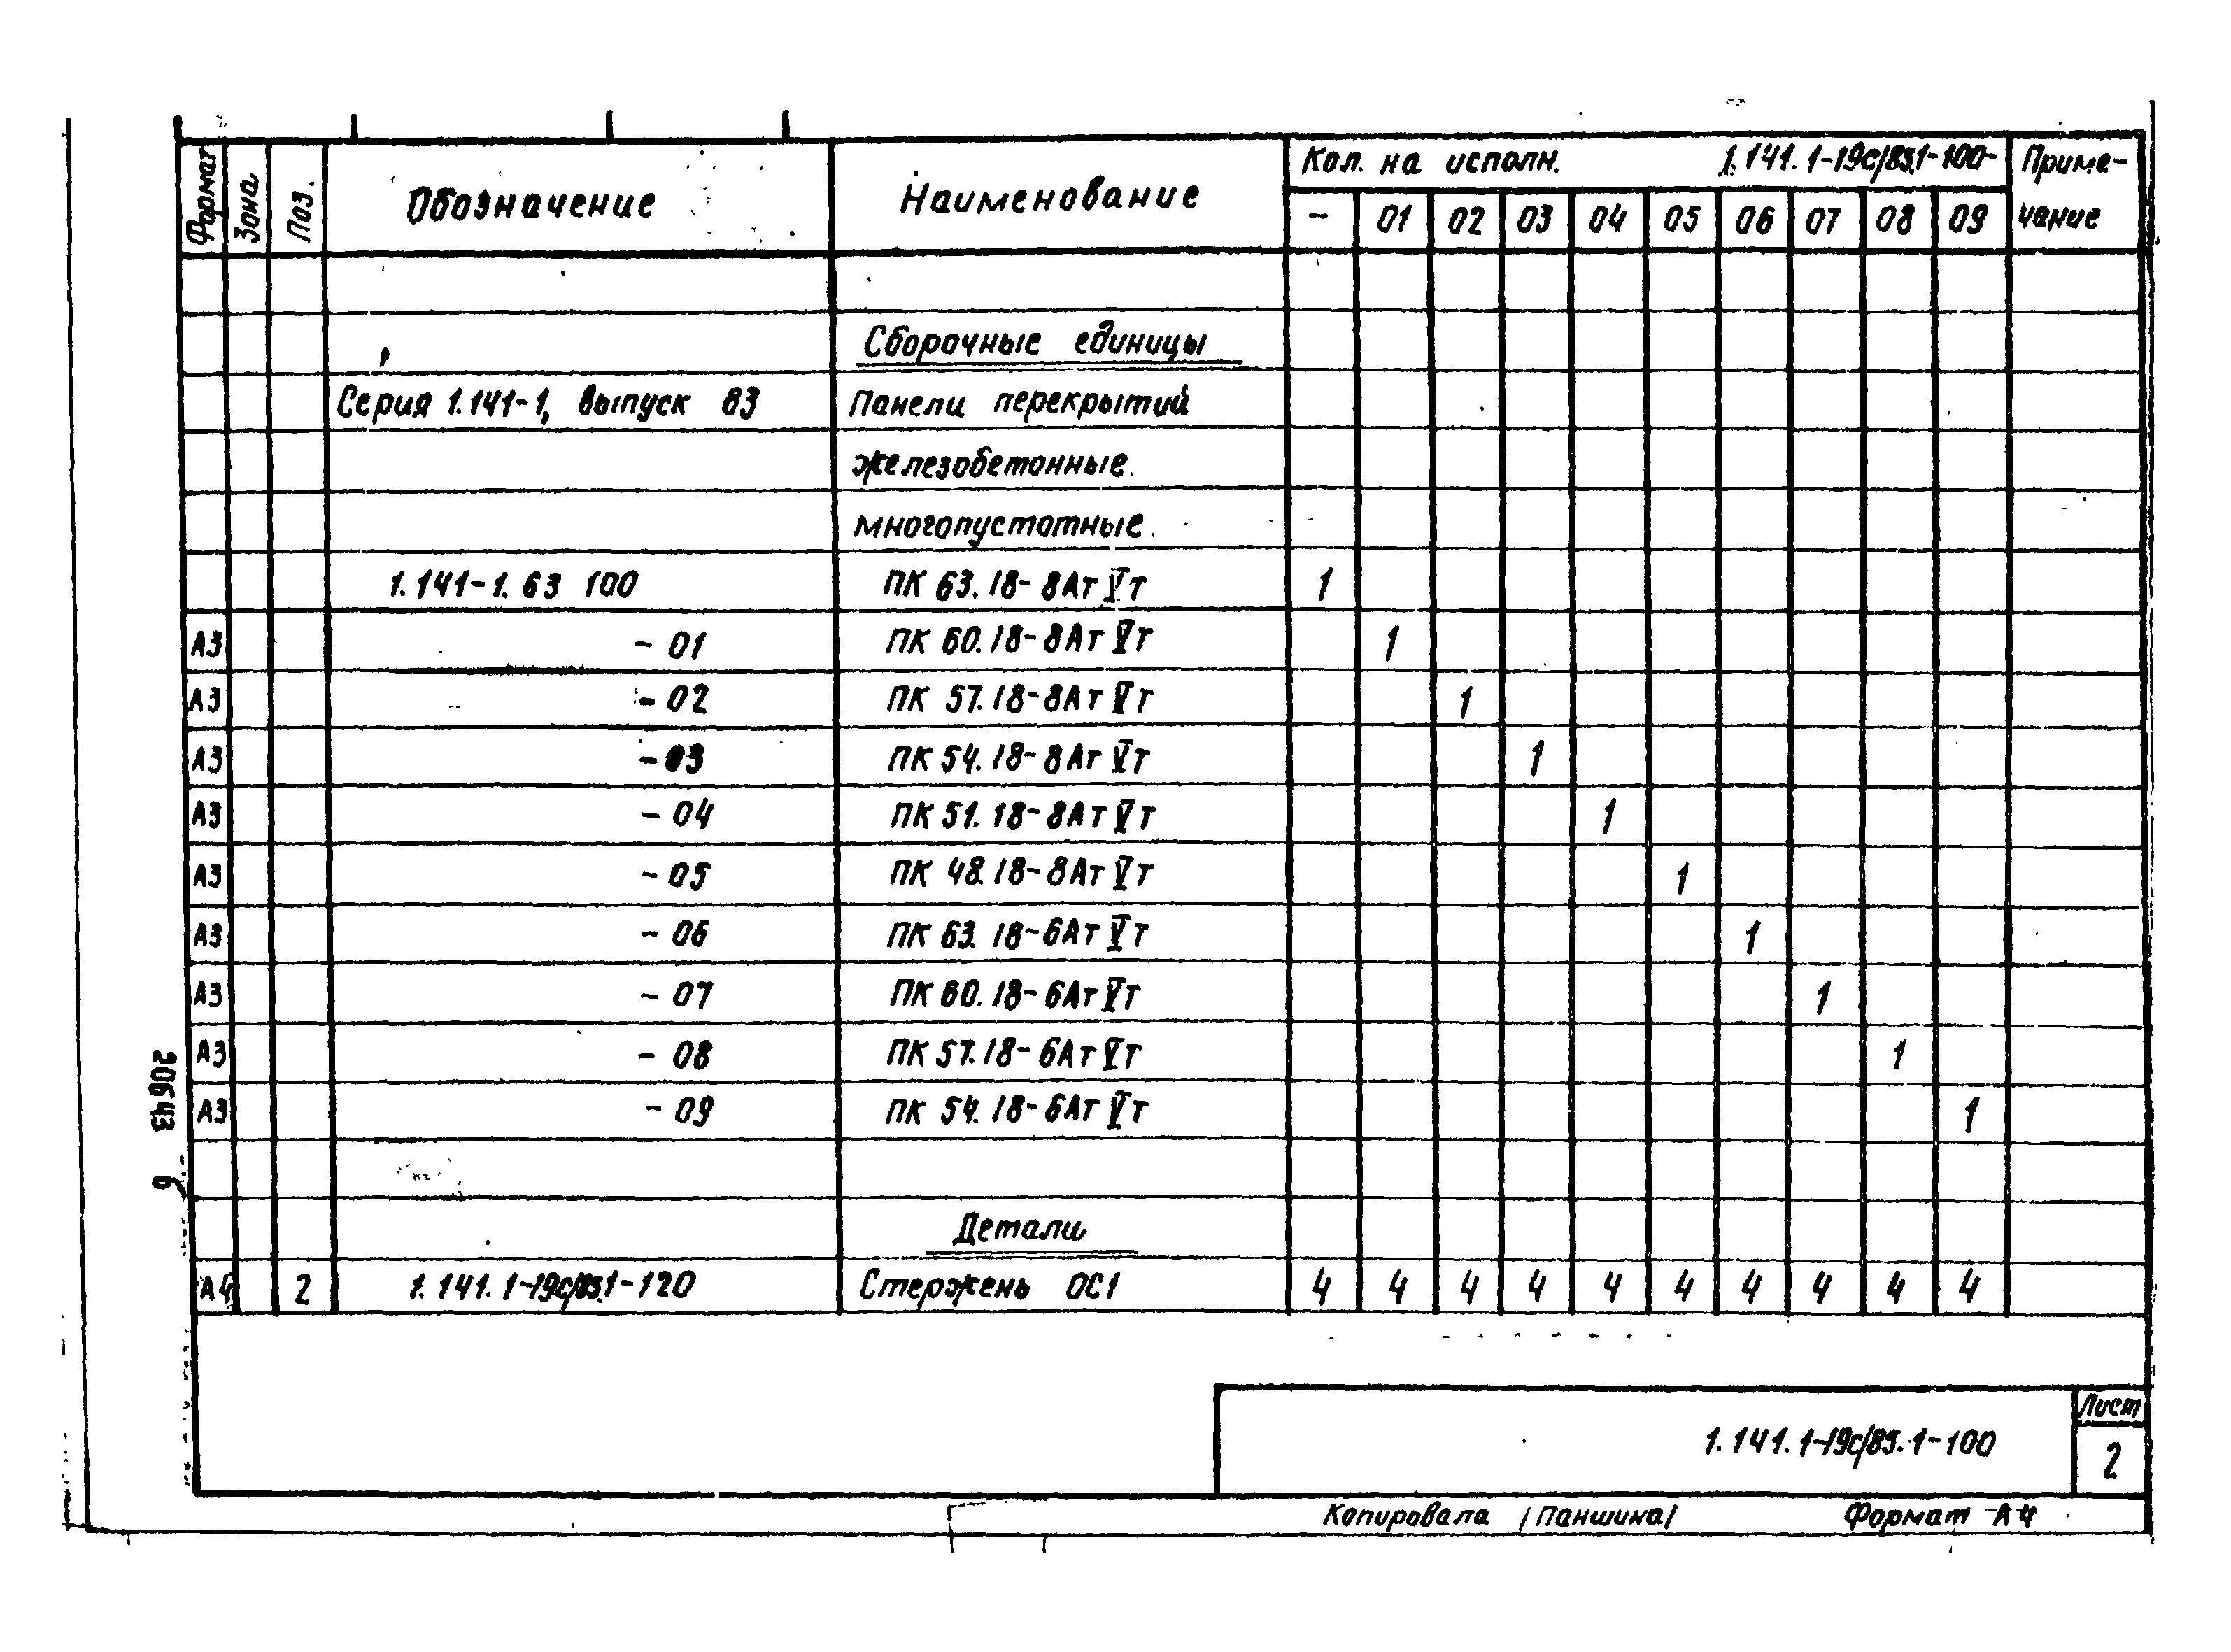 Формат Зона Поз. Обозначение Наименование Кол. на исполн. 1.141.1-19с/85.1-100- Приме-
чание
- 01 02 03 04 05 06 07 08 09
Сборочные единицы
Серия 1.141-1, выпуск 63 Панели перекрытий
железобетонные
многопустотные
1.141-1. 63 100 ПК 63.18-8АтVт 1
А3 - 01 ПК 60.18-8АтVт 1
А3 - 02 ПК 57.18-8АтVт 1
А3 - 03 ПК 54.18-8АтVт 1
А3 - 04 ПК 51.18-8АтVт 1
А3 - 05 ПК 48.18-8АтVт 1
А3 - 06 ПК 63.18-6АтVт 1
А3 - 07 ПК 60.18-6АтVт 1
А3 - 08 ПК 57.18-6АтVт 1
А3 - 09 ПК 54.18-6АтVт 1
Детали
А4 2 1.141.1-19с/85.1-120 Стержень ОС1 4 4 4 4 4 4 4 4 4 4
20643 6
1.141.1-19с/85.1-100
Лист
2
Копировала /Паншина/ Формат А4